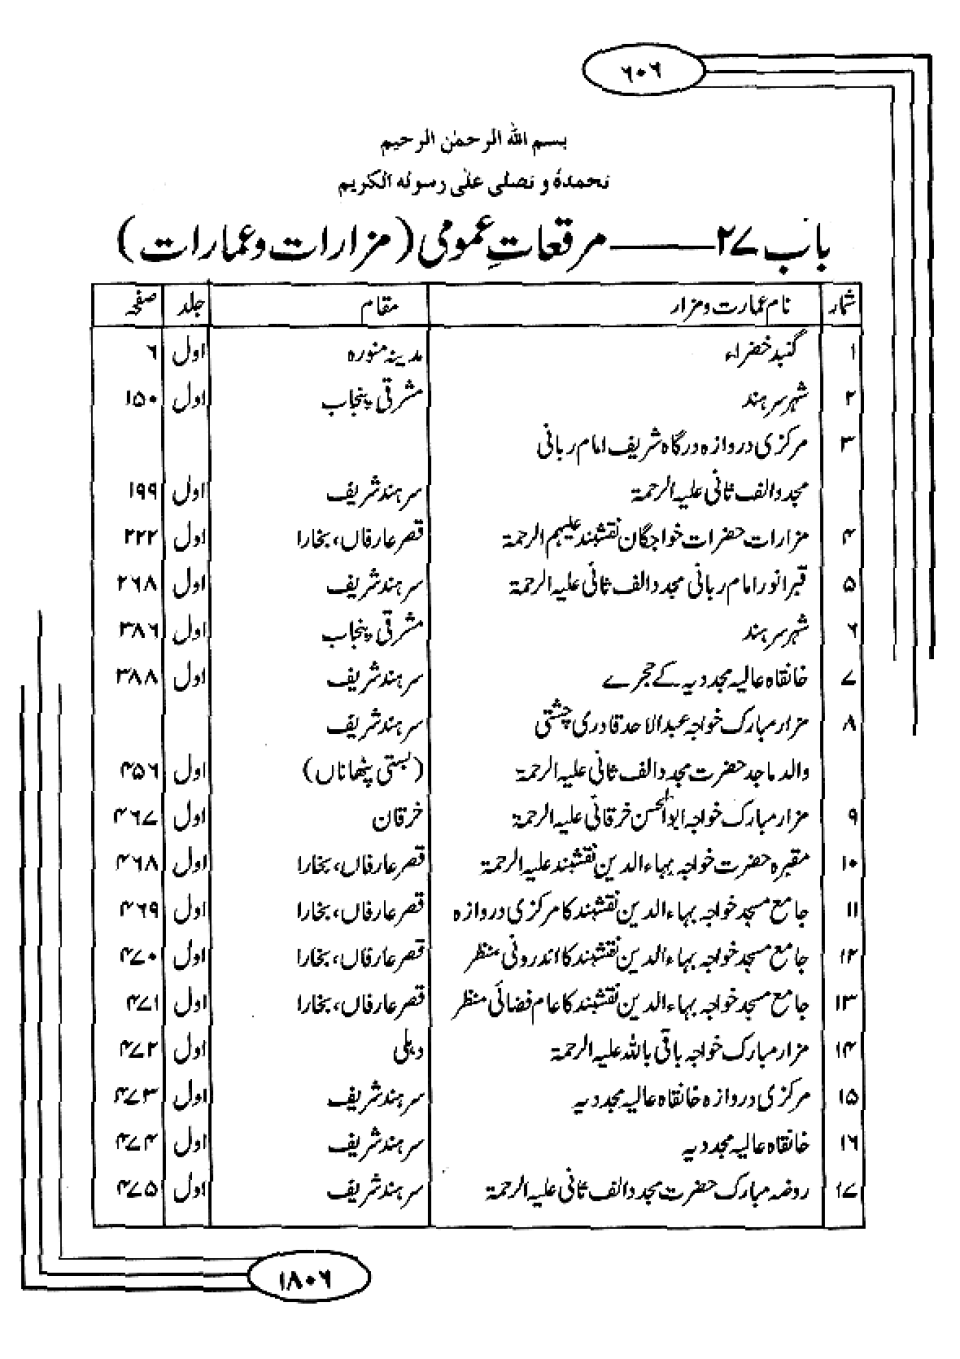 ٦٠٦
بسم الله الرحمٰن الرحیم
نحمدہٗ و نصلی علیٰ رسولہ الکریم
باب ۲۷ —— مرقعاتِ عمومی (مزارات و عمارات)
شمار نام عمارت و مزار مقام جلد صفحہ
۱ گنبد خضراء مدینہ منورہ اول ۶
۲ شہر سرہند مشرقی پنجاب اول ۱۵۰
۳ مرکزی دروازہ درگاہ شریف امام ربانی
مجدد الف ثانی علیہ الرحمۃ سرہند شریف اول ۱۹۹
۴ مزارات حضرات خواجگان نقشبند علیہم الرحمۃ قصر عارفاں، بخارا اول ۲۲۲
۵ قبر انور امام ربانی مجدد الف ثانی علیہ الرحمۃ سرہند شریف اول ۲۶۸
۶ شہر سرہند مشرقی پنجاب اول ۳۸۶
۷ خانقاہ عالیہ مجددیہ کے حجرے سرہند شریف اول ۳۸۸
۸ مزار مبارک خواجہ عبدالاحد قادری چشتی سرہند شریف
والد ماجد حضرت مجدد الف ثانی علیہ الرحمۃ (بستی پٹھاناں) اول ۴۵۶
۹ مزار مبارک خواجہ ابوالحسن خرقانی علیہ الرحمۃ خرقان اول ۴۶۷
۱۰ مقبرہ حضرت خواجہ بہاءالدین نقشبند علیہ الرحمۃ قصر عارفاں، بخارا اول ۴۶۸
۱۱ جامع مسجد خواجہ بہاءالدین نقشبند کا مرکزی دروازہ قصر عارفاں، بخارا اول ۴۶۹
۱۲ جامع مسجد خواجہ بہاءالدین نقشبند کا اندرونی منظر قصر عارفاں، بخارا اول ۴۷۰
۱۳ جامع مسجد خواجہ بہاءالدین نقشبند کا عام فضائی منظر قصر عارفاں، بخارا اول ۴۷۱
۱۴ مزار مبارک خواجہ باقی باللہ علیہ الرحمۃ دہلی اول ۴۷۲
۱۵ مرکزی دروازہ خانقاہ عالیہ مجددیہ سرہند شریف اول ۴۷۳
۱۶ خانقاہ عالیہ مجددیہ سرہند شریف اول ۴۷۴
۱۷ روضہ مبارک حضرت مجدد الف ثانی علیہ الرحمۃ سرہند شریف اول ۴۷۵
۱۸۰۶